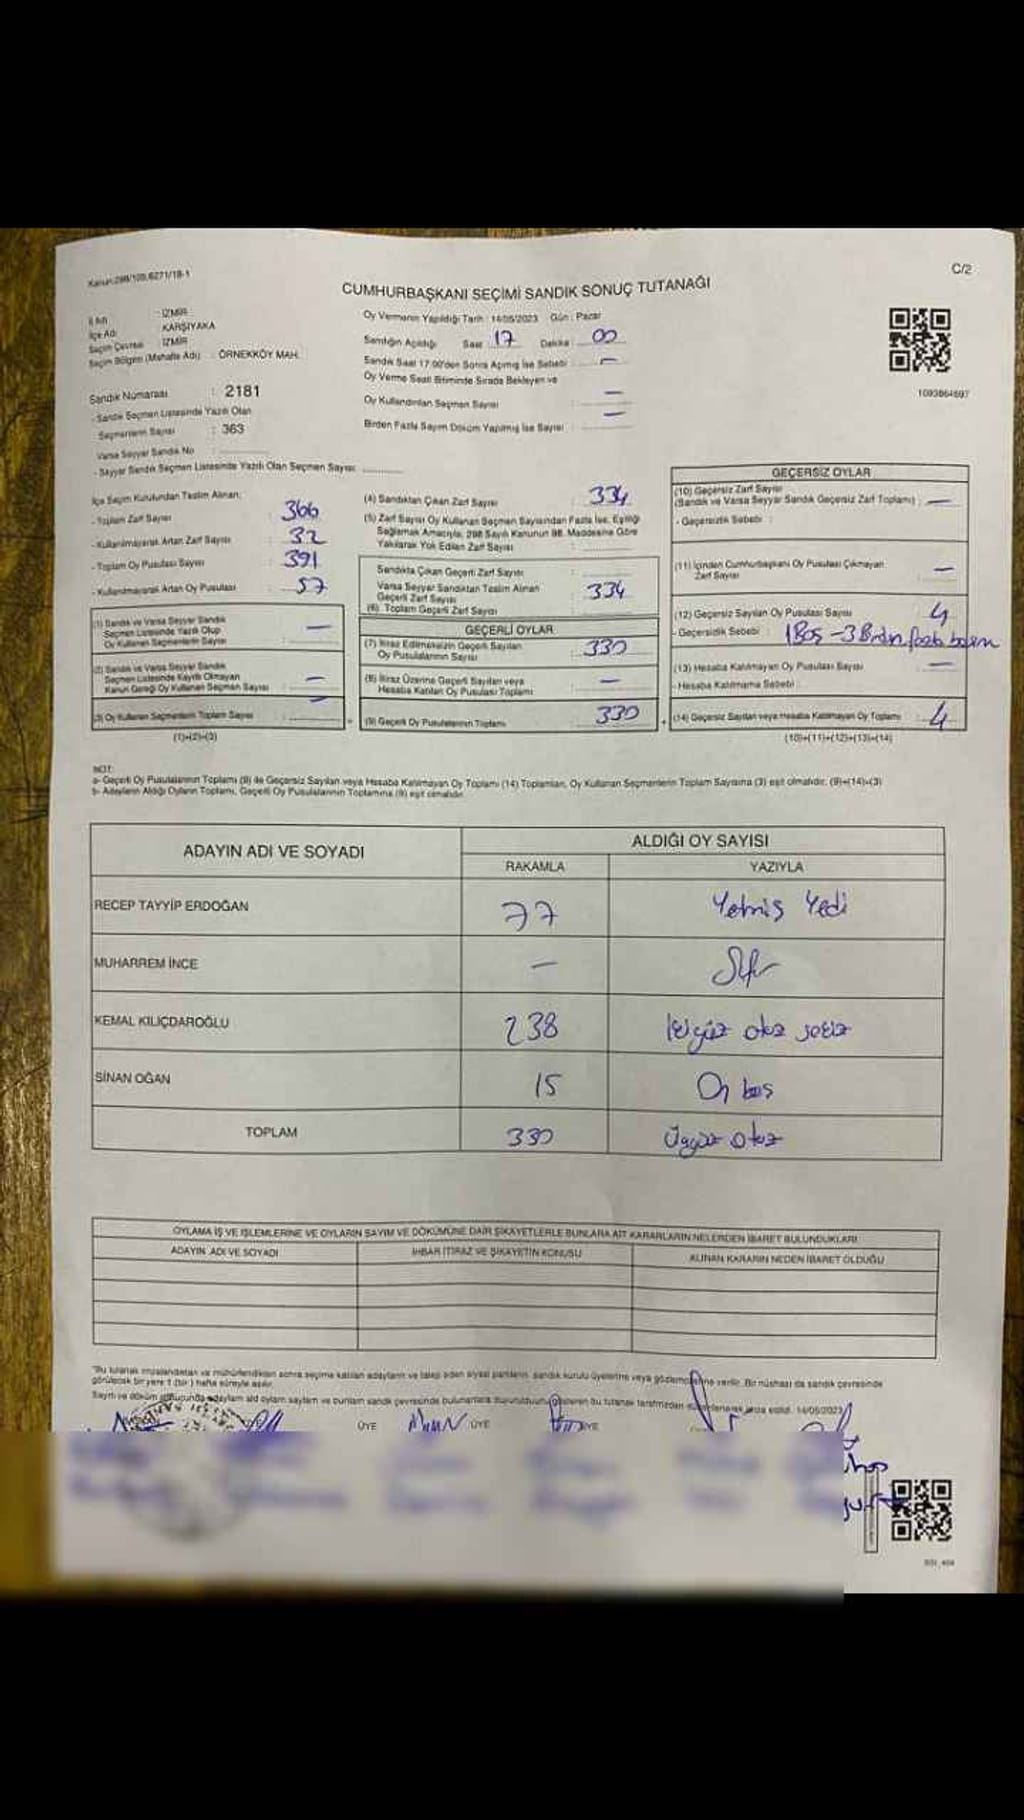 Kanun:298/109,6271/18-1
C/2
CUMHURBAŞKANI SEÇİMİ SANDIK SONUÇ TUTANAĞI
İl Adı : İZMİR
İlçe Adı : KARŞIYAKA
Seçim Çevresi : İZMİR
Seçim Bölgesi (Mahalle Adı) : ÖRNEKKÖY MAH.
Sandık Numarası : 2181
- Sandık Seçmen Listesinde Yazılı Olan
Seçmenlerin Sayısı : 363
Varsa Seyyar Sandık No :
- Seyyar Sandık Seçmen Listesinde Yazılı Olan Seçmen Sayısı
Oy Vermenin Yapıldığı Tarih : 14/05/2023 Gün : Pazar
Sandığın Açıldığı Saat : 17 Dakika : 00
Sandık Saat 17.00'den Sonra Açılmış İse Sebebi : —
Oy Verme Saati Bitiminde Sırada Bekleyen ve
Oy Kullandırılan Seçmen Sayısı : —
Birden Fazla Sayım Döküm Yapılmış İse Sayısı : —
1093864697
İlçe Seçim Kurulundan Teslim Alınan;
- Toplam Zarf Sayısı : 366
- Kullanılmayarak Artan Zarf Sayısı : 32
- Toplam Oy Pusulası Sayısı : 391
- Kullanılmayarak Artan Oy Pusulası : 57
(1) Sandık ve Varsa Seyyar Sandık
Seçmen Listesinde Yazılı Olup
Oy Kullanan Seçmenlerin Sayısı : —
(2) Sandık ve Varsa Seyyar Sandık
Seçmen Listesinde Kayıtlı Olmayan
Kanun Gereği Oy Kullanan Seçmen Sayısı : —
(3) Oy Kullanan Seçmenlerin Toplam Sayısı : —
(1)+(2)=(3)
(4) Sandıktan Çıkan Zarf Sayısı : 334
(5) Zarf Sayısı Oy Kullanan Seçmen Sayısından Fazla İse, Eşitliği
Sağlamak Amacıyla, 298 Sayılı Kanunun 98. Maddesine Göre
Yakılarak Yok Edilen Zarf Sayısı :
Sandıkta Çıkan Geçerli Zarf Sayısı :
Varsa Seyyar Sandıktan Teslim Alınan
Geçerli Zarf Sayısı
(6) Toplam Geçerli Zarf Sayısı : 334
GEÇERLİ OYLAR
(7) İtiraz Edilmeksizin Geçerli Sayılan
Oy Pusulalarının Sayısı : 330
(8) İtiraz Üzerine Geçerli Sayılan veya
Hesaba Katılan Oy Pusulası Toplamı : —
(9) Geçerli Oy Pusulalarının Toplamı : 330
GEÇERSİZ OYLAR
(10) Geçersiz Zarf Sayısı
(Sandık ve Varsa Seyyar Sandık Geçersiz Zarf Toplamı) : —
- Geçersizlik Sebebi :
(11) İçinden Cumhurbaşkanı Oy Pusulası Çıkmayan
Zarf Sayısı : —
(12) Geçersiz Sayılan Oy Pusulası Sayısı : 4
- Geçersizlik Sebebi : 1 Boş - 3 Birden fazla basım
(13) Hesaba Katılmayan Oy Pusulası Sayısı : —
- Hesaba Katılmama Sebebi :
(14) Geçersiz Sayılan veya Hesaba Katılmayan Oy Toplamı : 4
(10)+(11)+(12)+(13)=(14)
NOT:
a- Geçerli Oy Pusulalarının Toplamı (9) ile Geçersiz Sayılan veya Hesaba Katılmayan Oy Toplamı (14) Toplamları, Oy Kullanan Seçmenlerin Toplam Sayısına (3) eşit olmalıdır. (9)+(14)=(3)
b- Adayların Aldığı Oyların Toplamı, Geçerli Oy Pusulalarının Toplamına (9) eşit olmalıdır.
ADAYIN ADI VE SOYADI ALDIĞI OY SAYISI
RAKAMLA YAZIYLA
RECEP TAYYİP ERDOĞAN 77 Yetmiş Yedi
MUHARREM İNCE — Sıfır
KEMAL KILIÇDAROĞLU 238 İkiyüz otuz sekiz
SİNAN OĞAN 15 On beş
TOPLAM 330 Üçyüz otuz
OYLAMA İŞ VE İŞLEMLERİNE VE OYLARIN SAYIM VE DÖKÜMÜNE DAİR ŞİKAYETLERLE BUNLARA AİT KARARLARIN NELERDEN İBARET BULUNDUKLARI
ADAYIN ADI VE SOYADI İHBAR İTİRAZ VE ŞİKAYETİN KONUSU ALINAN KARARIN NEDEN İBARET OLDUĞU
"Bu tutanak imzalandıktan ve mühürlendikten sonra seçime katılan adayların ve talep eden siyasi partilerin, sandık kurulu üyelerine veya gözlemcilerine verilir. Bir nüshası da sandık çevresinde
görülecek bir yere 1 (bir) hafta süreyle asılır.
Sayım ve döküm sonucunda adayların aldı oyların sayılarını ve bunların sandık çevresinde bulunanlara duyurulduğunu gösteren bu tutanak tarafımızdan düzenlenerek imza edildi. 14/05/2023
ÜYE ÜYE ÜYE